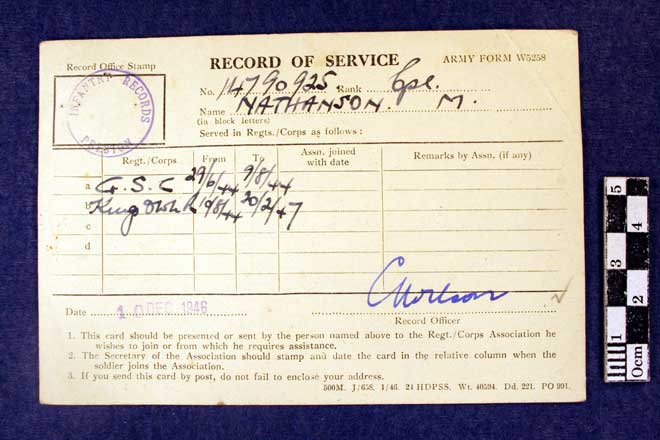 Record Office Stamp
RECORD OF SERVICE
ARMY FORM W5258
INFANTRY RECORDS
PRESTON
No. 14790925 Rank Cpl.
Name NATHANSON. M.
(in block letters)
Served in Regts./Corps as follows :
Regt./Corps From To Assn. joined with date Remarks by Assn. (if any)
a G.S.C 29/6/44 9/8/44
b King Own R 10/8/44 20/2/47
c
d
Date 10 DEC 1946
Record Officer
1. This card should be presented or sent by the person named above to the Regt./Corps Association he
wishes to join or from which he requires assistance.
2. The Secretary of the Association should stamp and date the card in the relative column when the
soldier joins the Association.
3. If you send this card by post, do not fail to enclose your address.
500M. J/658. 1/46. 24 HDPSS. Wt. 40594. Dd. 221. PO 991.
5
4
3
2
1
0cm